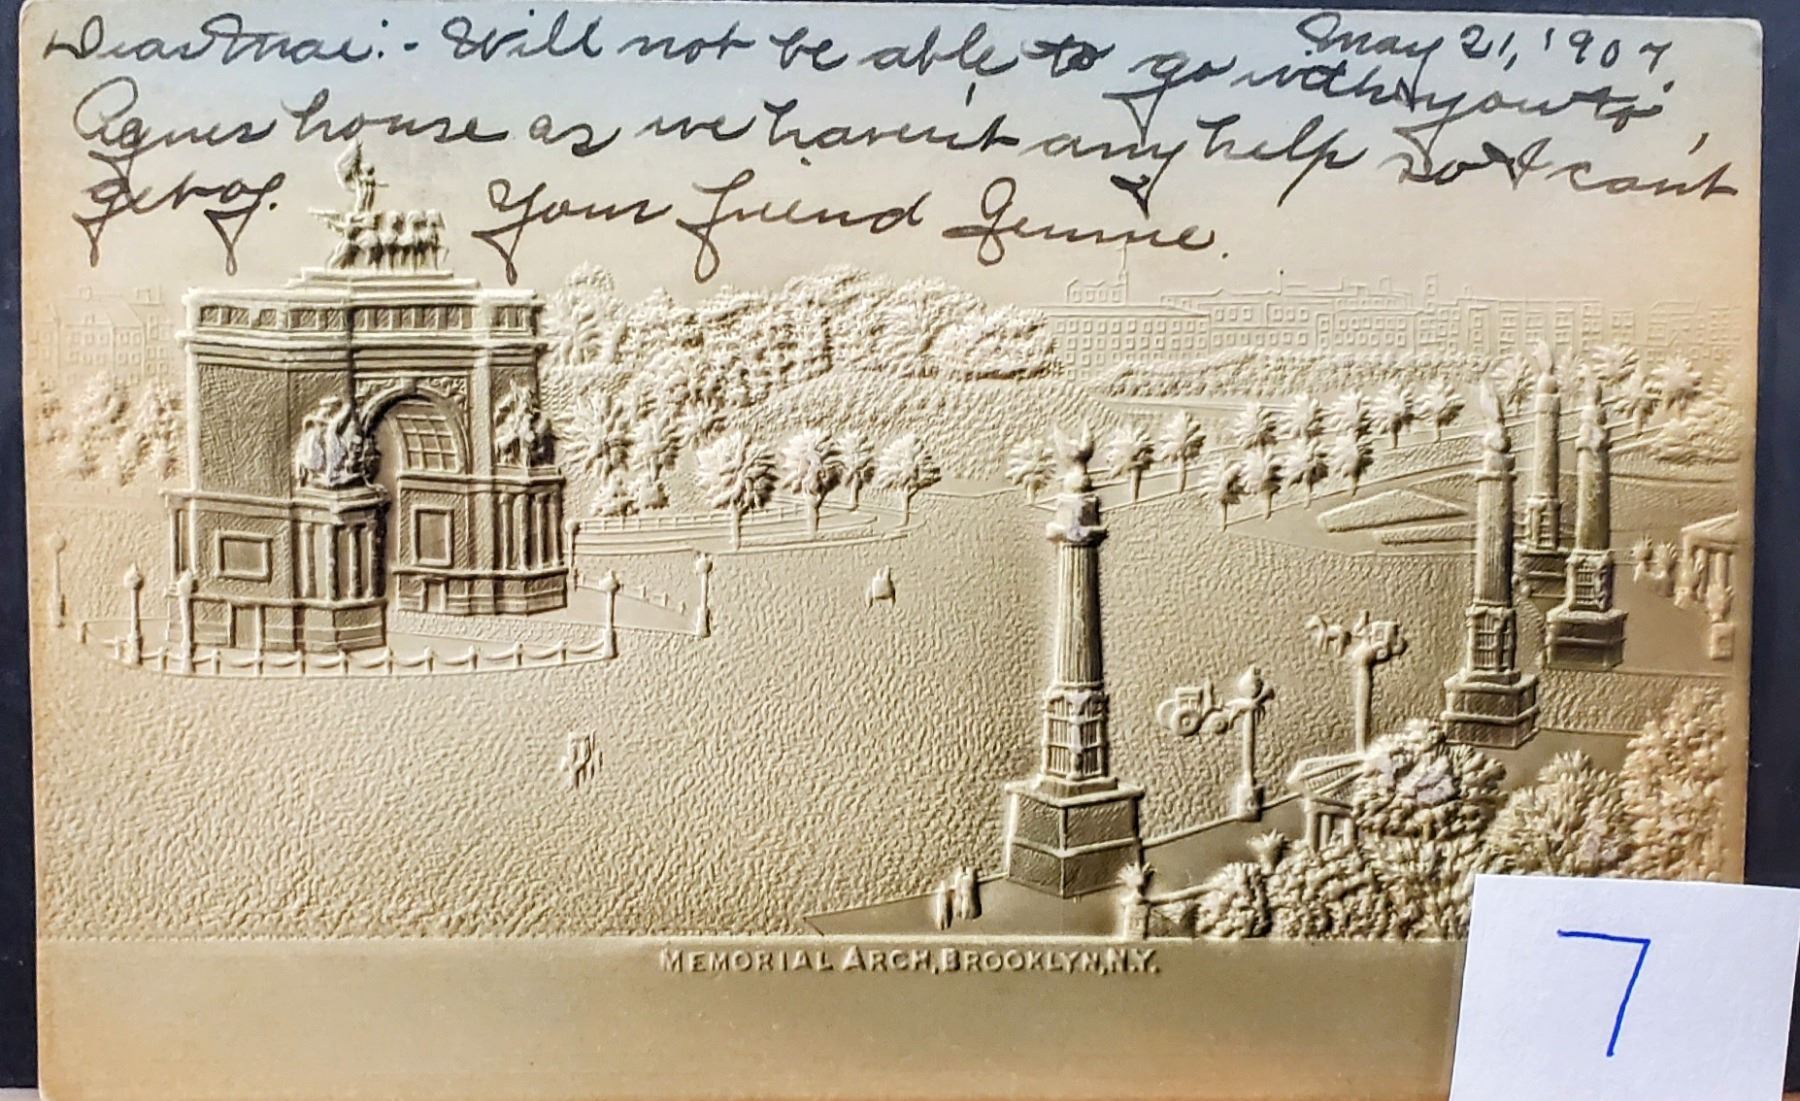 May 21, 1907,
Dear Mae:- Will not be able to go with you to
Agnes house as we haven't any help so I can't
get of. Your friend Jennie.
MEMORIAL ARCH, BROOKLYN, N.Y.
7